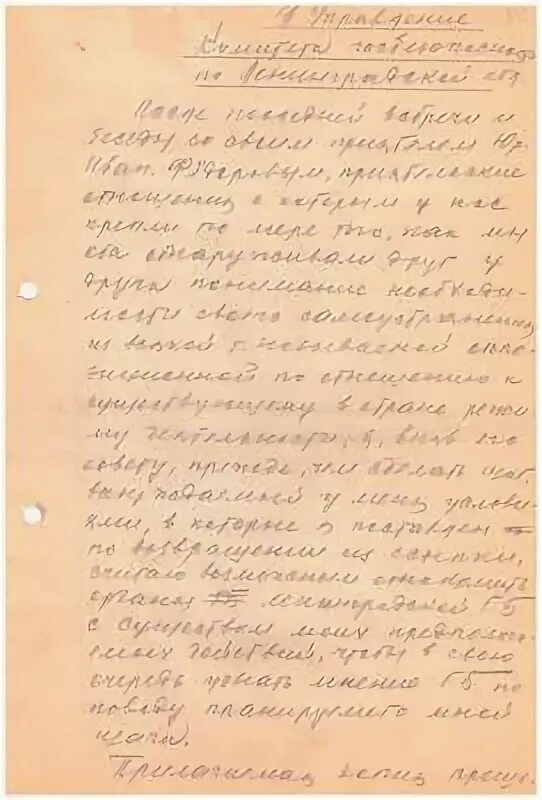 В Управление
Комитета госбезопасности
по Ленинградской обл.
После последней встречи и
беседы со своим приятелем Юр.
Иван. Фёдоровым, приятельские
отношения с которым у нас
крепли по мере того, как мы
оба обнаруживали друг у
друга понимание необходи-
мости своего самоустранения
из всякой т. называемой оппо-
зиционной по отношению к
существующему в стране режи-
му деятельности, я, вняв его
совету, прежде, чем сделать
у меня услови-
ями, в которые я поставлен
по возвращении из ссылки,
считаю возможным ознакомить
органы Ленинградской ГБ
с существом моих предполага-
емых действий, чтобы в свою
очередь узнать мнение ГБ по
поводу планируемого мной
шага.
Прилагаемая копия проше-